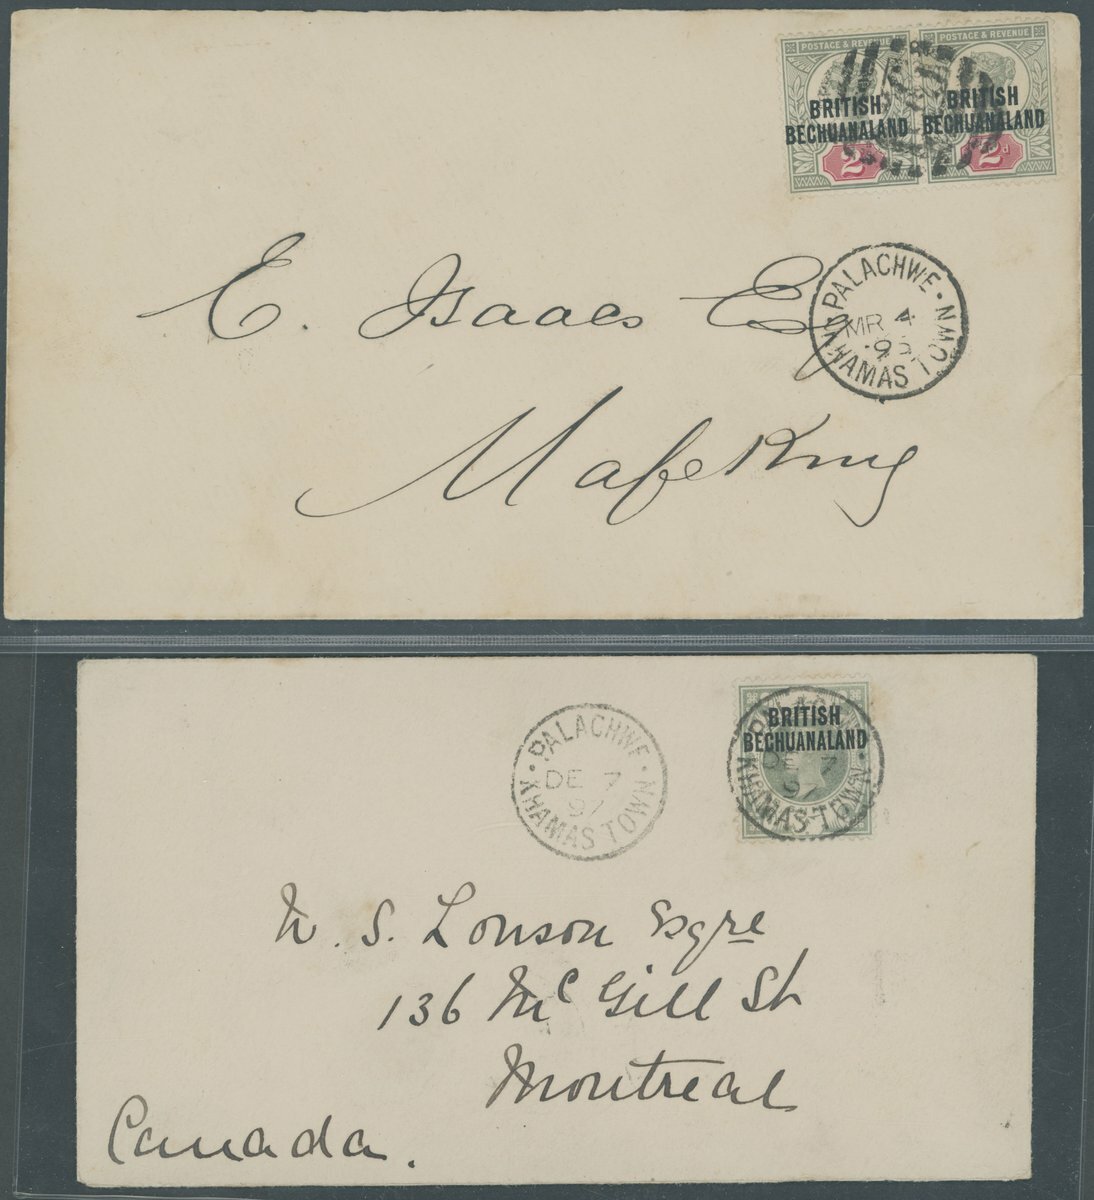 POSTAGE & REVENUE POSTAGE & REVENUE
BRITISH BRITISH
BECHUANALAND BECHUANALAND
2d
E. Isaacs Esq
PALACHWE
MR 4
95
KHAMAS TOWN
Mafeking
PALACHWE
DE 7
97
KHAMAS TOWN
BRITISH
BECHUANALAND
DE 7
97
KHAMAS TOWN
W. S. Louson Esqre
136 McGill St
Montreal
Canada.